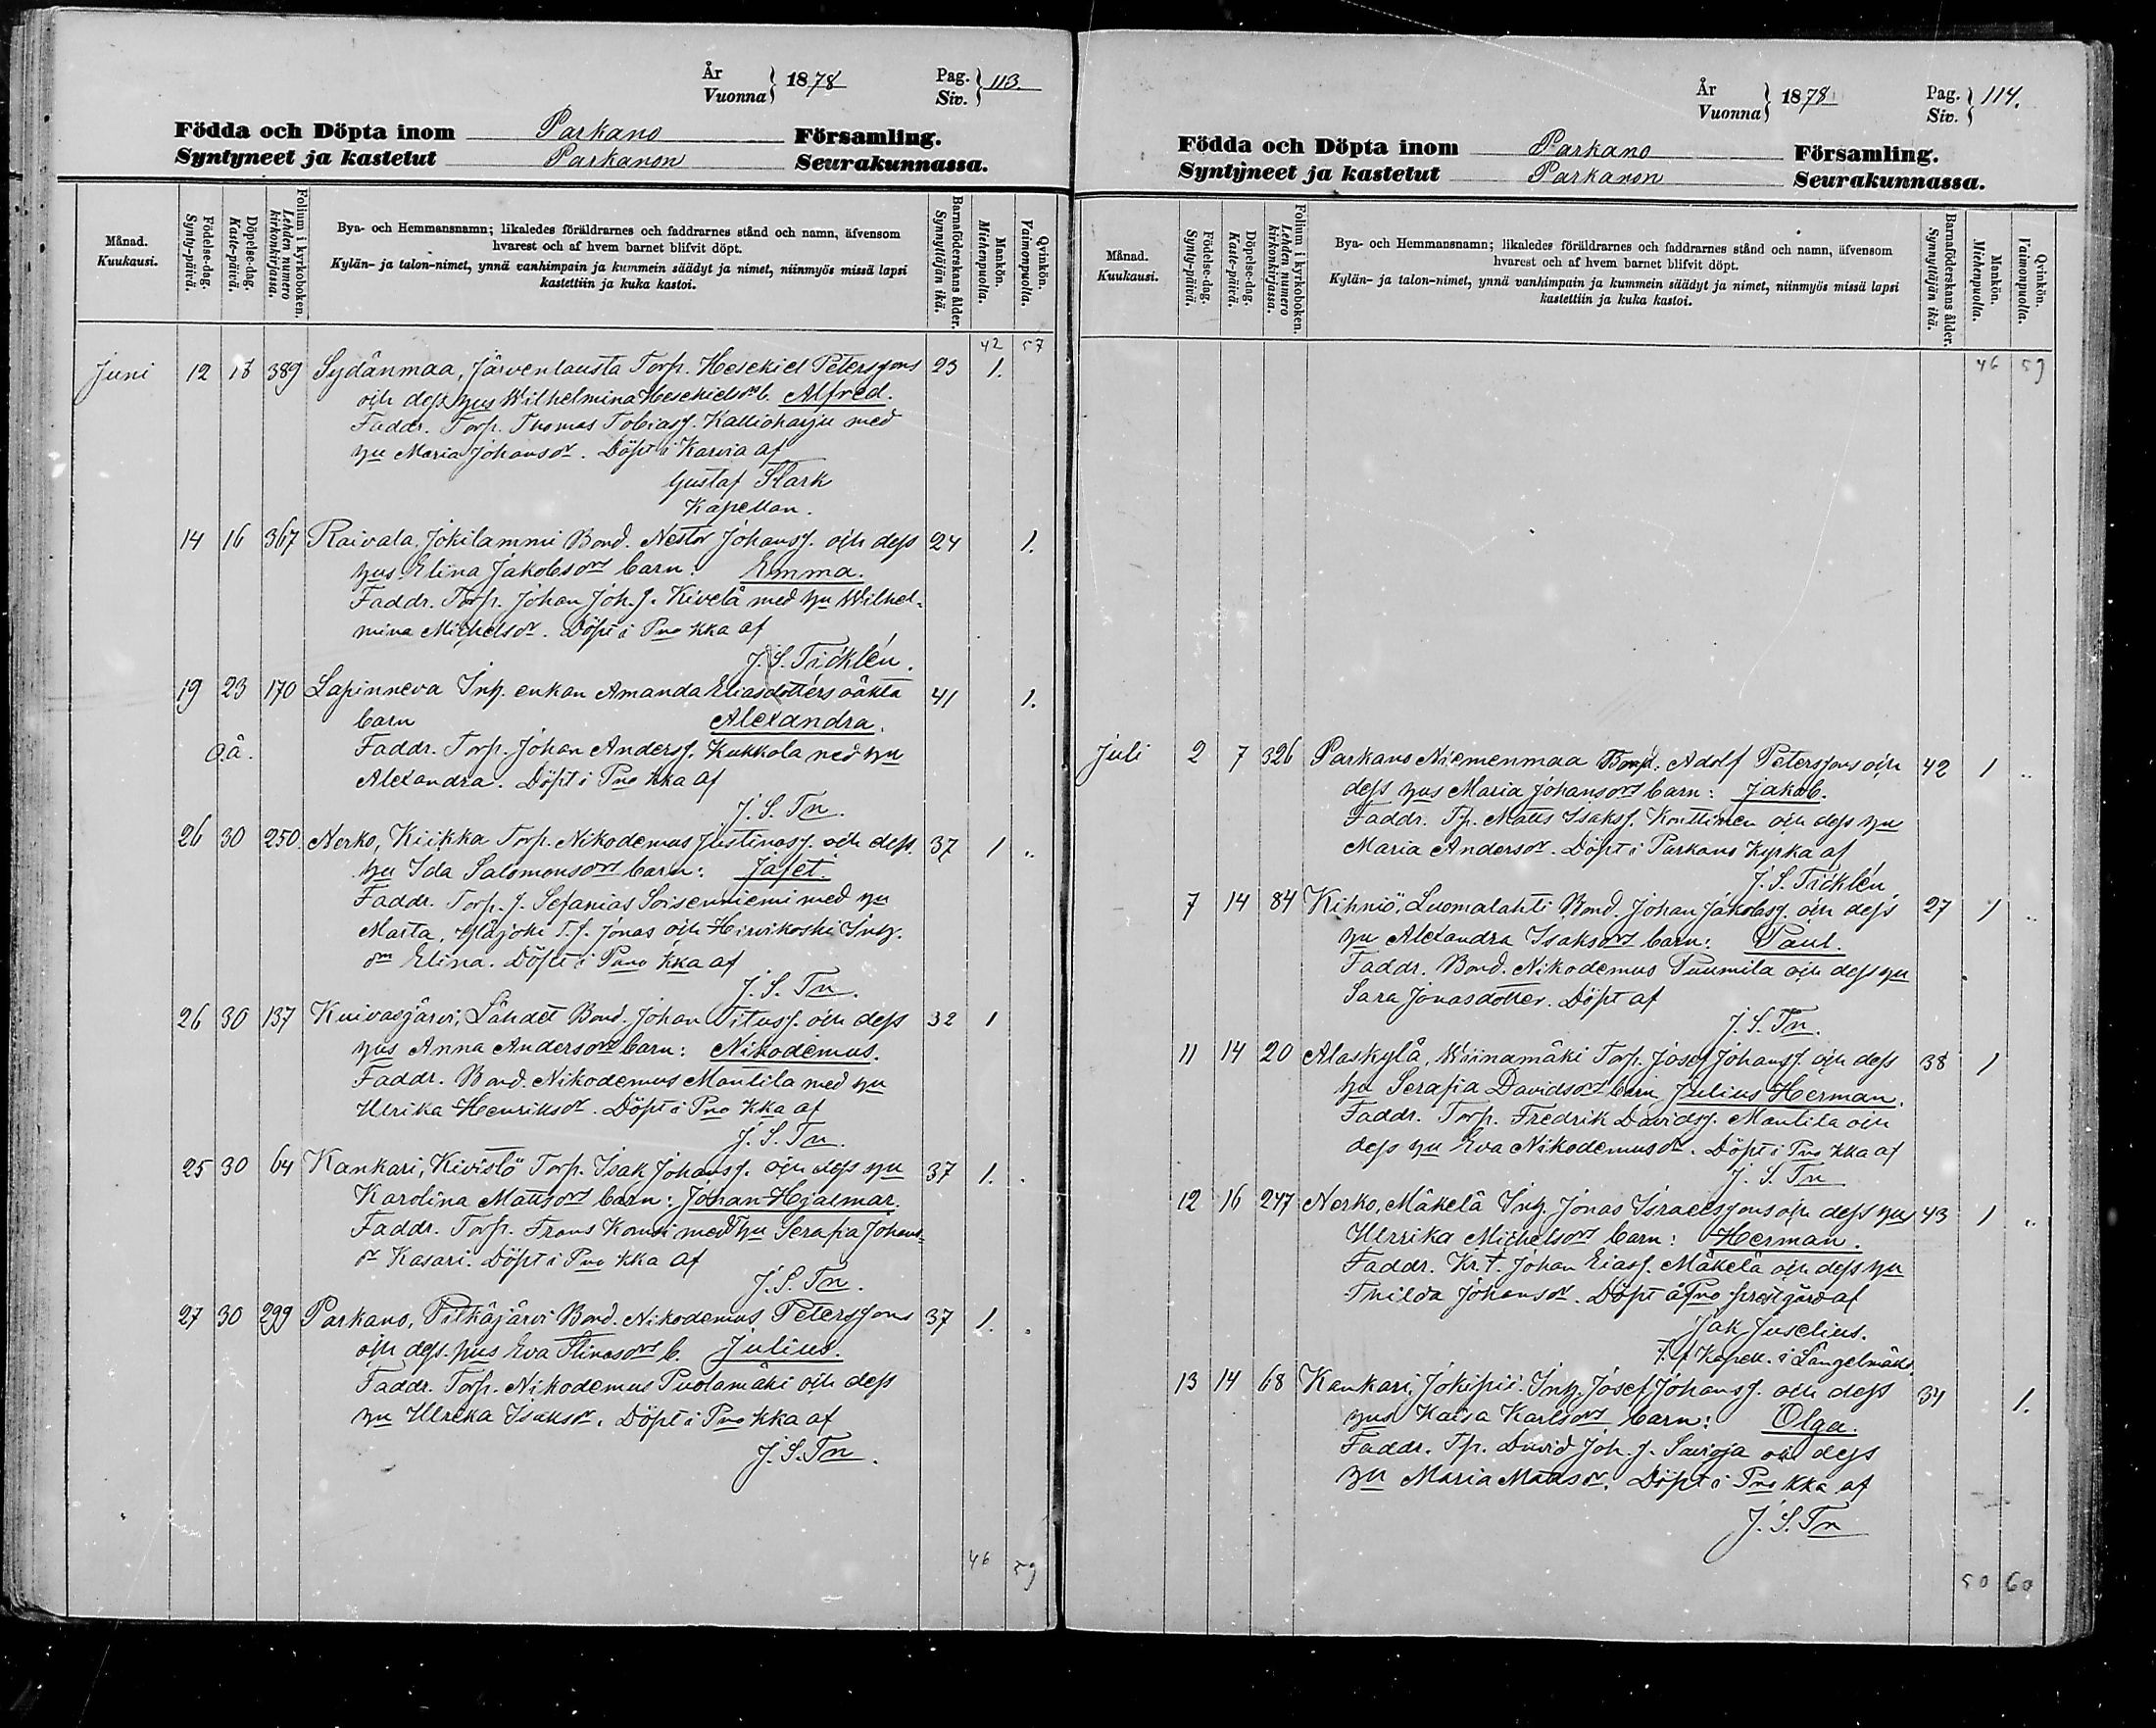 År
Vuonna } 1878 Pag.
Siv. } 113.
Födda och Döpta inom Parkano Församling.
Syntyneet ja kastetut Parkanon Seurakunnassa.
Månad.
Kuukausi.
Födelse-dag.
Synty-päivä.
Döpelse-dag.
Kaste-päivä.
Folium i kyrkoboken.
Lehden numero
kirkonkirjassa.
Bya- och Hemmansnamn; likaledes föräldrarnes och faddrarnes stånd och namn, äfvensom
hvarest och af hvem barnet blifvit döpt.
Kylän- ja talon-nimet, ynnä vanhimpain ja kummein säädyt ja nimet, niinmyös missä lapsi
kastettiin ja kuka kastoi.
Barnaföderskans ålder.
Synnyttäjän ikä.
Mankön.
Miehenpuolla.
Qvinkön.
Vaimonpuolla.
42 57
Juni 12 18 389 Sydänmaa, Järvenlausta Torp. Hesekiel Peterssons 23 1.
och dess hus Wilhelmina Heschielsdr b. Alfred.
Faddr. Torp. Thomas Tobiass. Kallioharju med
hu Maria Johansdr. Döpt i Karvia af
Gustaf Stark
Kapellan.
14 16 367 Raivala, Jokilammi Bond. Nestor Johanss. och dess 24 1.
hus Elina Jakobsdrs barn: Emma.
Faddr. Torp. Johan Joh. s. Kivelä med hu Wilhel-
mina Michelsdr. Döpt i Pno kka af
J. S. Ticklén.
19 23 170 Lapinneva Inh. enkan Amanda Eliasdotters oäkta 41 1.
barn Alexandra.
o.ä. Faddr. Torp. Johan Anderss. Kukkola med hu
Alexandra. Döpt i Pno kka af
J. S. Tn.
26 30 250 Nerko, Kiikka Torp. Nikodemus Justinass. och dess 37 1 "
hu Ida Salomonsdrs barn: Jafet.
Faddr. Torp. s. Sefanias Soisenniemi med hu
Maita, Yläjoki T. s. Jonas och Hirvikoski Inh.
dm Elina. Döpt i Pano kka af
J. S. Tn.
26 30 137 Kuivasjärvi, Lähdet Bond. Johan Tituss. och dess 32 1
hus Anna Andersdrs barn: Nikodemus.
Faddr. Bond. Nikodemus Mantila med hu
Ulrika Henriksdr. Döpt i Pno kka af
J. S. Tn.
25 30 64 Kankari, Kivistö Torp. Isak Johanss. och dess hu 37 1.
Karolina Mattsdrs barn: Johan Hjalmar.
Faddr. Torp. Frans Komsi med hu Serafia Johans-
dr Kasari. Döpt i Pno kka af
J. S. Tn.
27 30 299 Parkano, Pitkäjärvi Bond. Nikodemus Peterssons 37 1.
och dess hus Eva Stinasdrs b. Julius.
Faddr. Torp. Nikodemus Puolamäki och dess
hu Ulrika Isaksdr. Döpt i Pno kka af
J. S. Tn.
46 59
År
Vuonna } 1878 Pag.
Siv. } 114.
Födda och Döpta inom Parkano Församling.
Syntyneet ja kastetut Parkanon Seurakunnassa.
Månad.
Kuukausi.
Födelse-dag.
Synty-päivä.
Döpelse-dag.
Kaste-päivä.
Folium i kyrkoboken.
Lehden numero
kirkonkirjassa.
Bya- och Hemmansnamn; likaledes föräldrarnes och faddrarnes stånd och namn, äfvensom
hvarest och af hvem barnet blifvit döpt.
Kylän- ja talon-nimet, ynnä vanhimpain ja kummein säädyt ja nimet, niinmyös missä lapsi
kastettiin ja kuka kastoi.
Barnaföderskans ålder.
Synnyttäjän ikä.
Mankön.
Miehenpuolla.
Qvinkön.
Vaimonpuolla.
46 59
Juli 2 7 326 Parkano Niemenmaa Bond. Adolf Peterssons och 42 1 "
dess hus Maria Johansdrs barn: Jakob.
Faddr. Tp. Matts Isakss. Konttinen och dess hu
Maria Andersdr. Döpt i Parkano Kyrka af
J. S. Ticklén
7 14 84 Kihniö, Luomalahti Bond. Johan Jakobss. och dess 27 1 "
hu Alexandra Isaksdrs barn: Paul.
Faddr. Bond. Nikodemus Puumila och dess hu
Sara Jonasdotter. Döpt af
J. S. Tn.
11 14 20 Alaskylä, Wiinamäki Torp. Josef Johanss. och dess 38 1
hu Serafia Davidsdrs barn Julius Herman.
Faddr. Torp. Fredrik Davidss. Mantila och
dess hu Eva Nikodemusdr. Döpt i Pno kka af
J. S. Tn
12 16 247 Nerko, Mäkelä Inh. Jonas Israelssons och dess hus 43 1 "
Ulrika Michelsdrs barn: Herman.
Faddr. Kr. t. Johan Eliass. Mäkelä och dess hu
Thilda Johansdr. Döpt å Pno prestgård af
Jak Juselius.
T. f. Kapell. i Längelmäki
13 14 68 Kankari, Jokipii Inh. Josef Johanss. och dess 34 1.
hus Kaisa Karlsdrs barn: Olga.
Faddr. Tp. David Joh. s. Savioja och dess
hu Maria Mattsdr. Döpt i Pno kka af
J. S. Tn
50 60